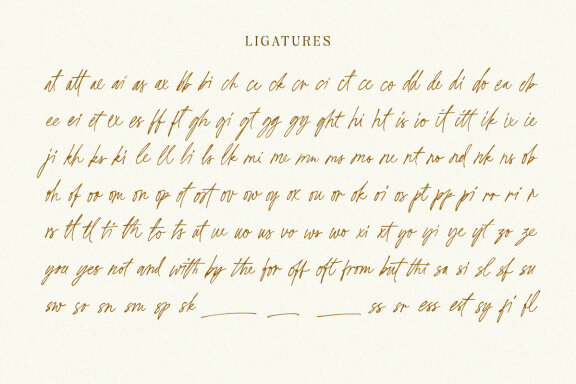 LIGATURES
at att ae ai as ax bb bi ch ce ck cr ci ct cc co dd de di do ea eb
ee ei et ex es ff ft gh gi gt gg gy ght hi ht is io it itt ik ix ie
ji kh ks ki le ll li ls lk mi me mm ms mo ne nt no nd nk ns ob
oh of oo om on op ot ost ov ow oy ox ou or ok oi os pt pp pi ro ri r
rs tt tl ti th to ts ut ue uo us vo ws wo xi xt yo yi ye yt zo ze
you yes not and with by the for off oft from but thi sa si sl sf su
sw so sn sm sp sk ss sr ess est sy fi fl